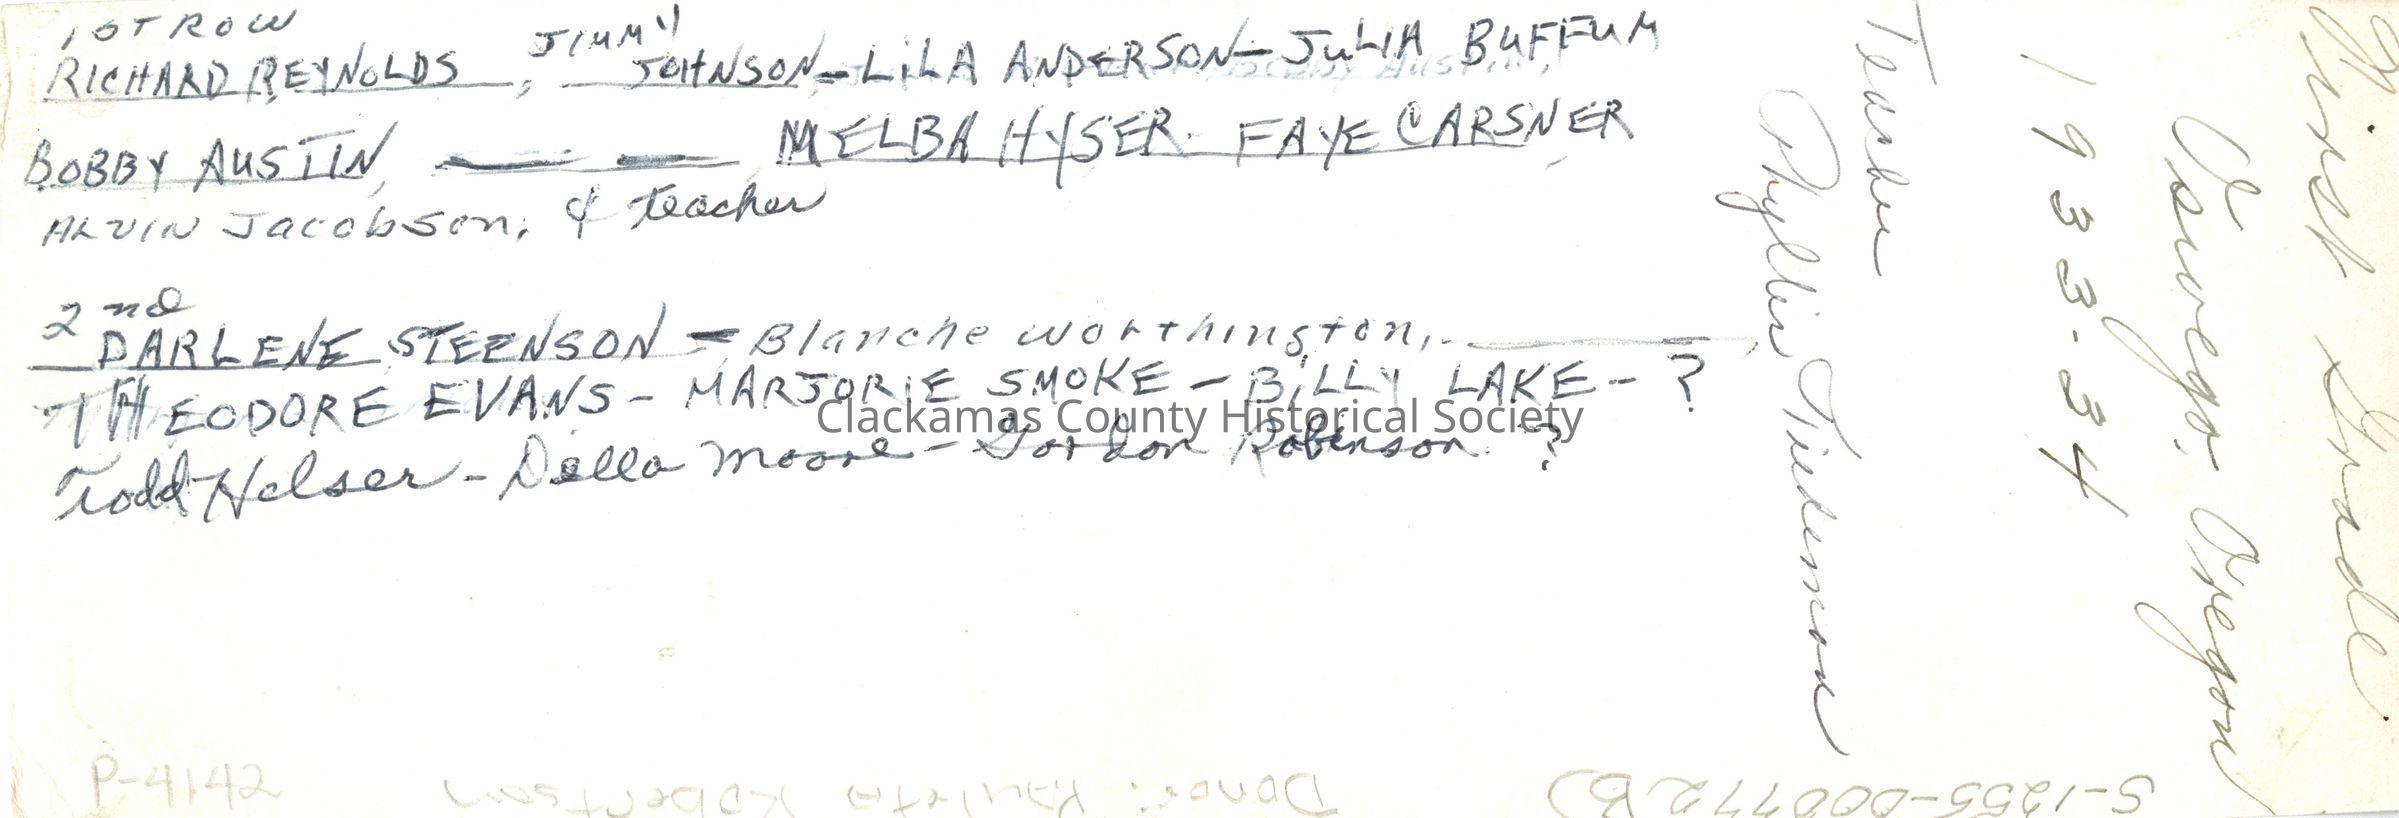 1ST ROW
RICHARD REYNOLDS, JIMMY JOHNSON - LiLA ANDERSON - JuLIA BUFFUM
BOBBY AUSTIN, MELBA HYSER - FAYE CARSNER
ALVIN Jacobson, & teacher
2nd
DARLENE STEENSON - Blanche Worthington,
THEODORE EVANS - MARJORIE SMOKE - BiLLY LAKE - ?
Todd Helser - Della Moore - Gordon Robinson ?
Clackamas County Historical Society
Teacher
Phyllis Tiedeman
1933-34
Oswego. Oregon
First Grade
P-4142
Donor: Robertson